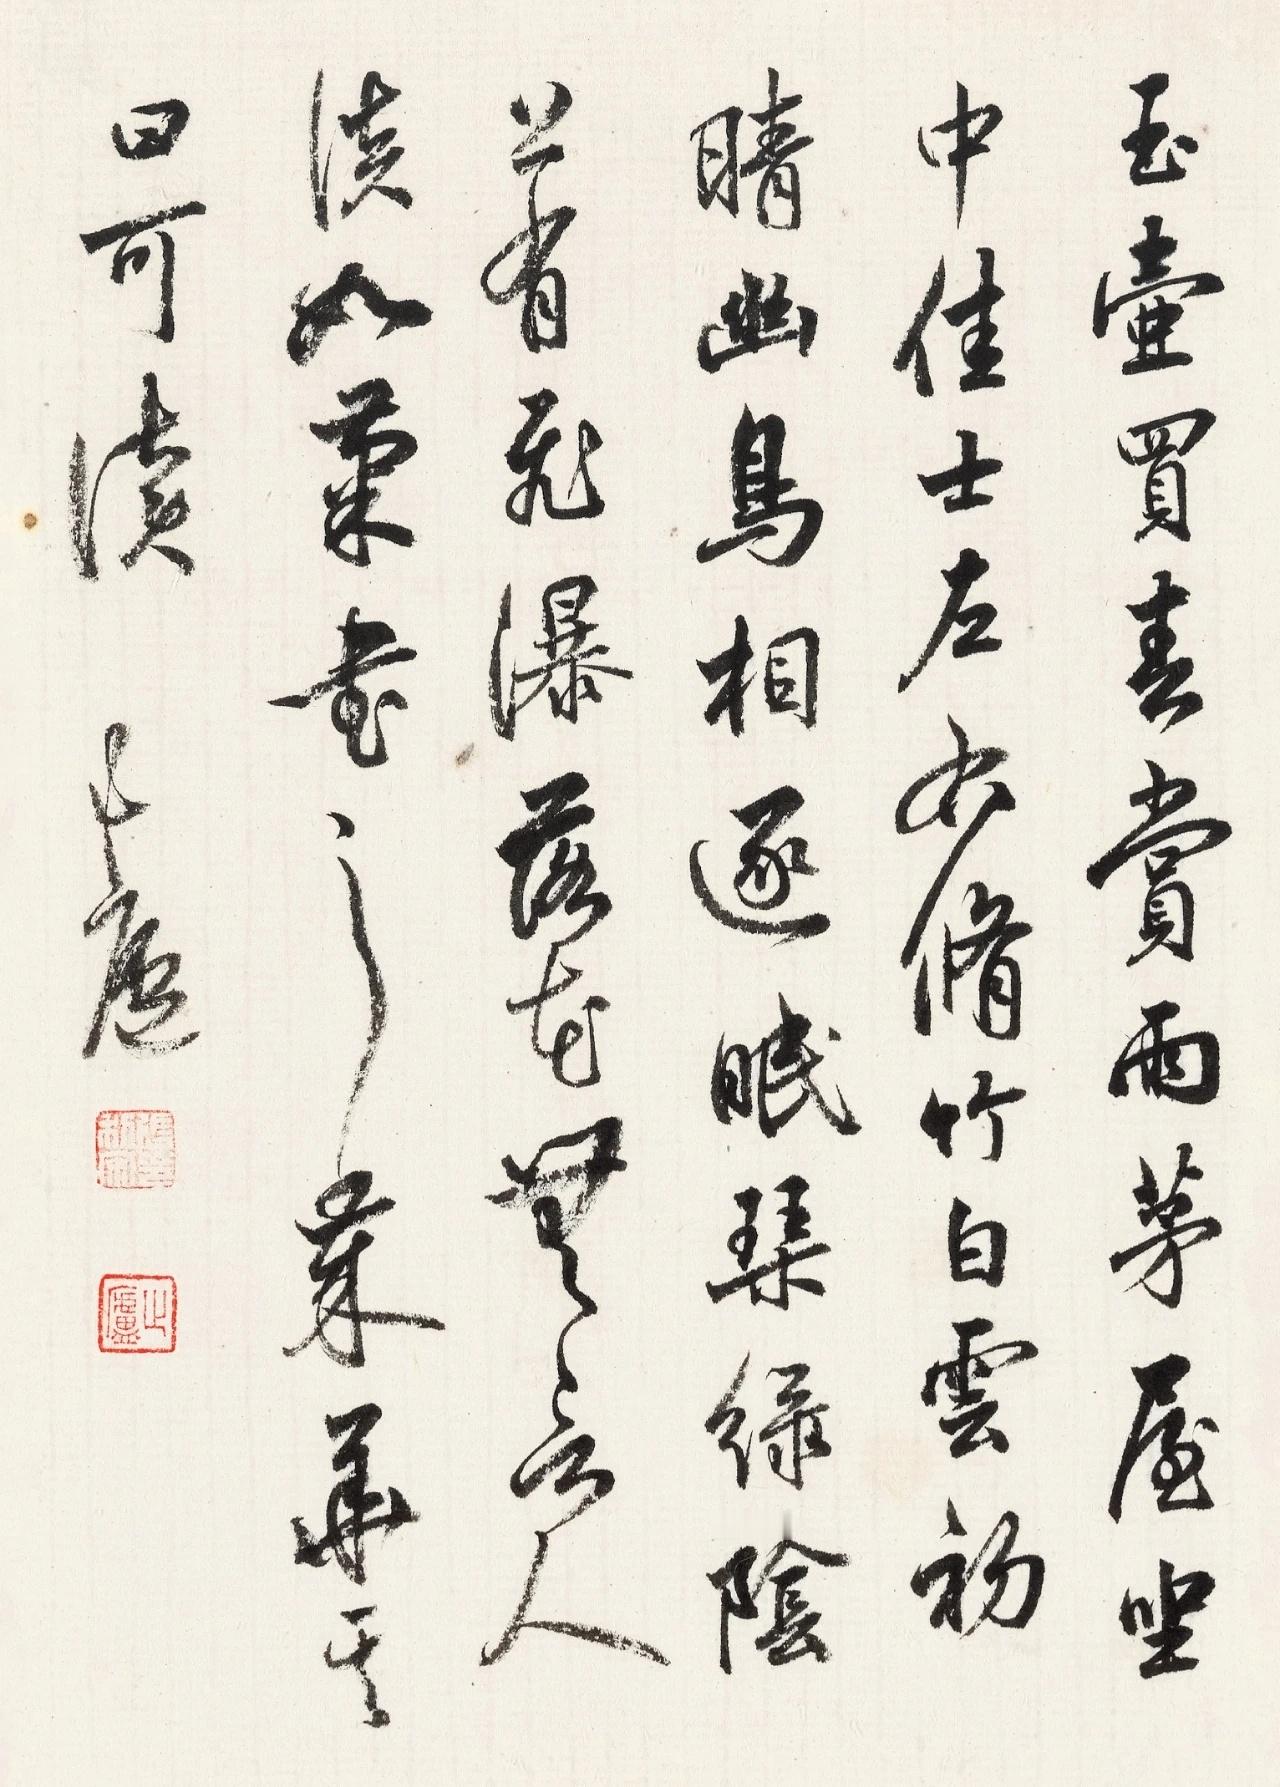 玉壺買春賞雨茅屋坐
中佳士左右脩竹白雲初
晴幽鳥相逐眠琴綠陰
上有飛瀑落花無言人
淡如菊書之歲華其
曰可讀 廬
止廬